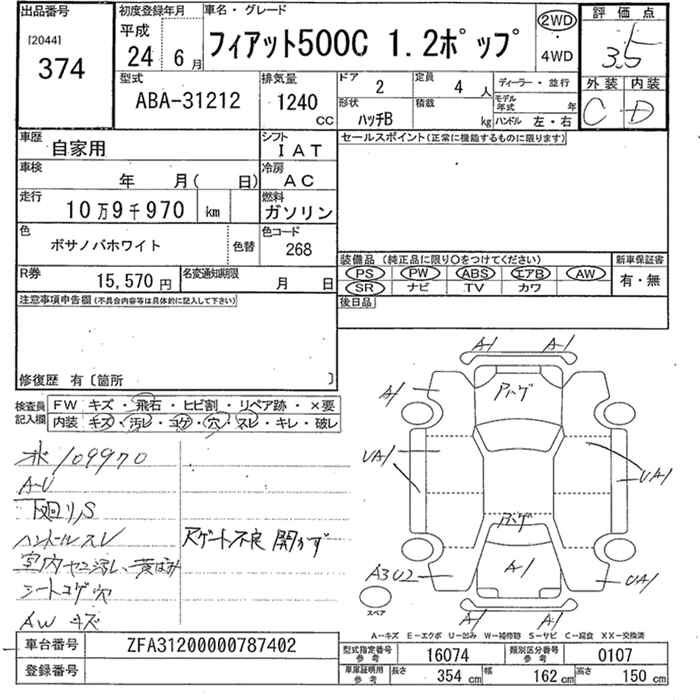 出品番号
[2044]
374
初度登録年月
平成
24 6 月
車名・グレード
フィアット500C 1.2ポップ
2WD
・
4WD
評価点
3.5
外装 内装
C D
型式
ABA-31212
排気量
1240
CC
ドア
2
定員
4 人
ディーラー・並行
形状
ハッチB
積載
kg
モデル年式 年
ハンドル 左・右
車歴
自家用
シフト
IAT
セールスポイント(正常に機能するものに限ります)
車検
年 月( 日)
冷房
AC
走行
10万9千970 km
燃料
ガソリン
色
ボサノバホワイト
色替
色コード
268
装備品(純正品に限り○をつけてください)
新車保証書
PS PW ABS エアB AW
有・無
SR ナビ TV カワ
R券
15,570 円
名変通知期限
月 日
後日品
注意事項申告欄(不具合内容等は具体的に記入して下さい)
修復歴 有〔箇所 〕
検査員
記入欄
FW キズ・飛石・ヒビ割・リペア跡・×要
内装 キズ・汚レ・コゲ・穴・スレ・キレ・破レ
109970
A-U
下廻りS
ハンドルスレ
室内ヤニ汚レ
シートコゲ穴
AW キズ
Rゲート不良 開かず
A-1 A-1
A1
UA1
UA1
A3U2
UA1
A-1
A-1 A-1
スペア
A-キズ E-エクボ U-凹み W-補修跡 S-サビ C-腐食 XX-交換済
車台番号 ZFA31200000787402
登録番号
型式指定番号
参考
16074
類別区分番号
参考
0107
車庫証明用
参考
長さ 354 cm 幅 162 cm 高さ 150 cm